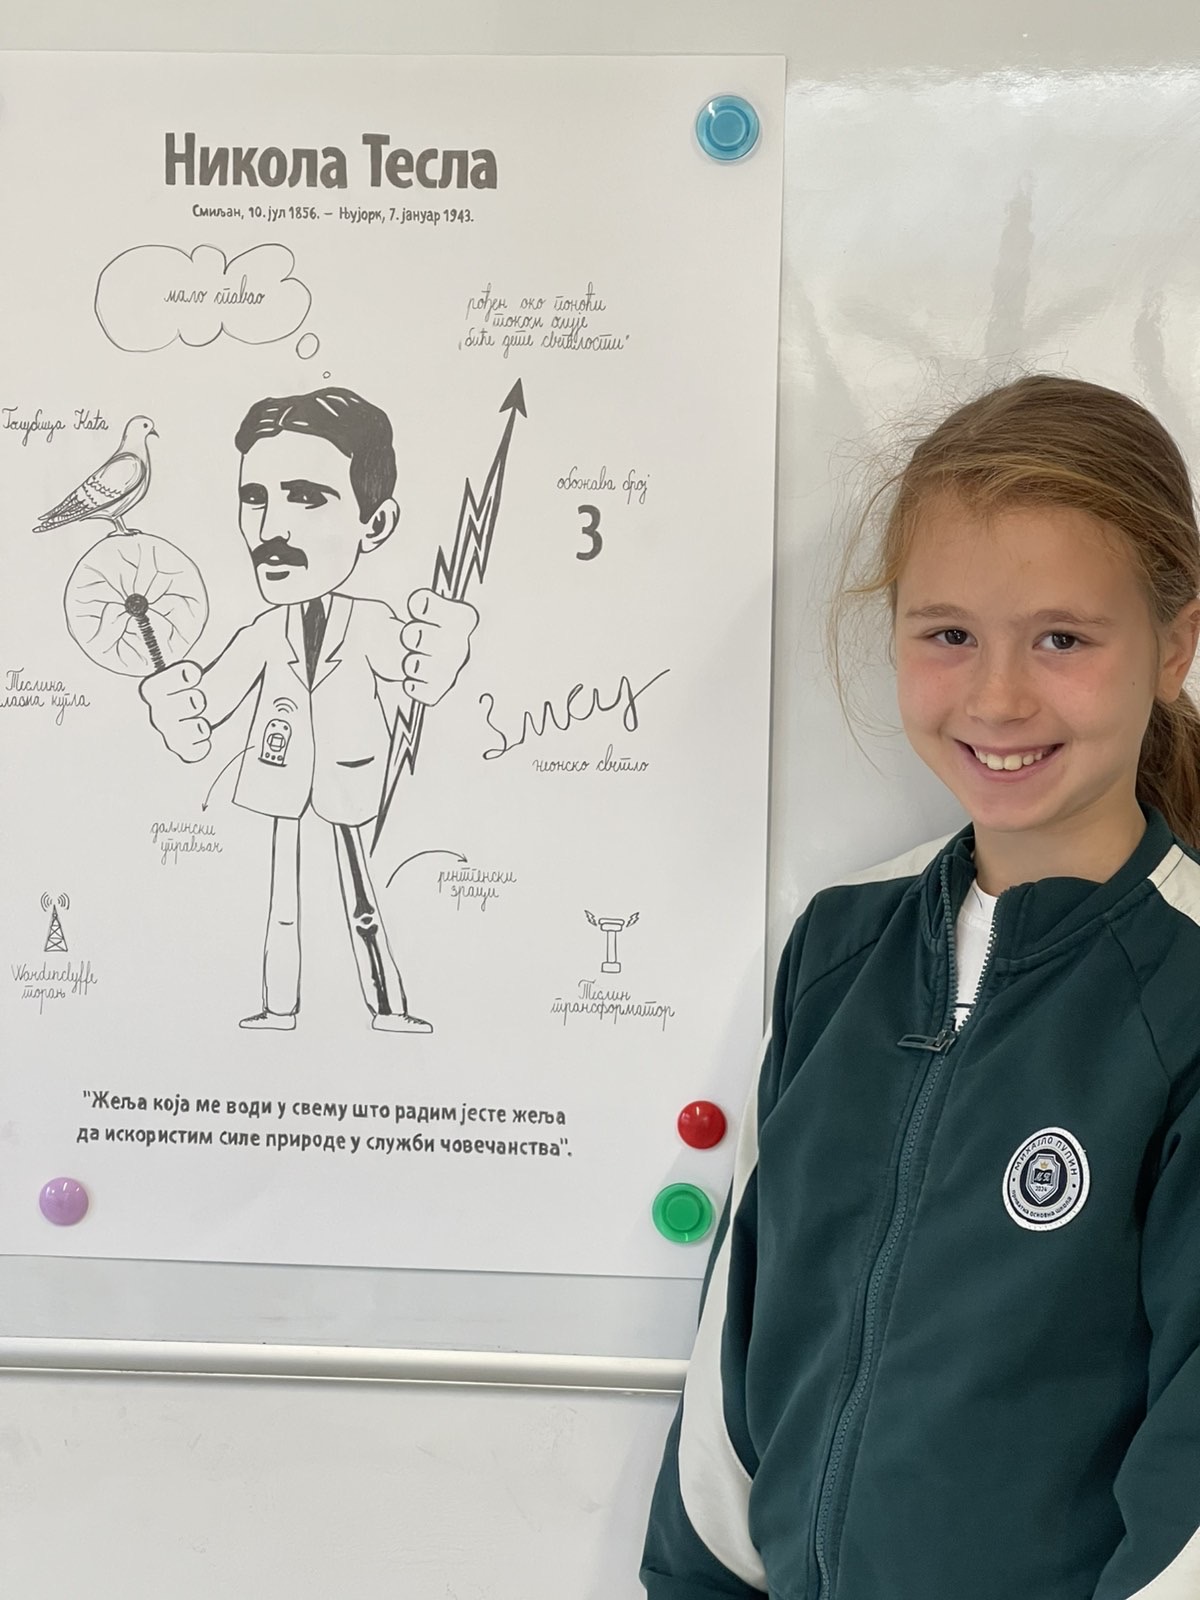 Никола Тесла
Смиљан, 10. јул 1856. – Њујорк, 7. јануар 1943.
мало спавао
рођен око поноћи
током олује
„биће дете светлости"
Голубица Kata
обожава број
3
Теслина
кугла
Змај
неонско светло
даљински
управљач
рентгенски
зраци
Wardenclyffe
торањ
Теслин
трансформатор
"Жеља која ме води у свему што радим јесте жеља
да искористим силе природе у служби човечанства".
МИХАЈЛО ПУПИН
2024
ПРИВАТНА ОСНОВНА ШКОЛА